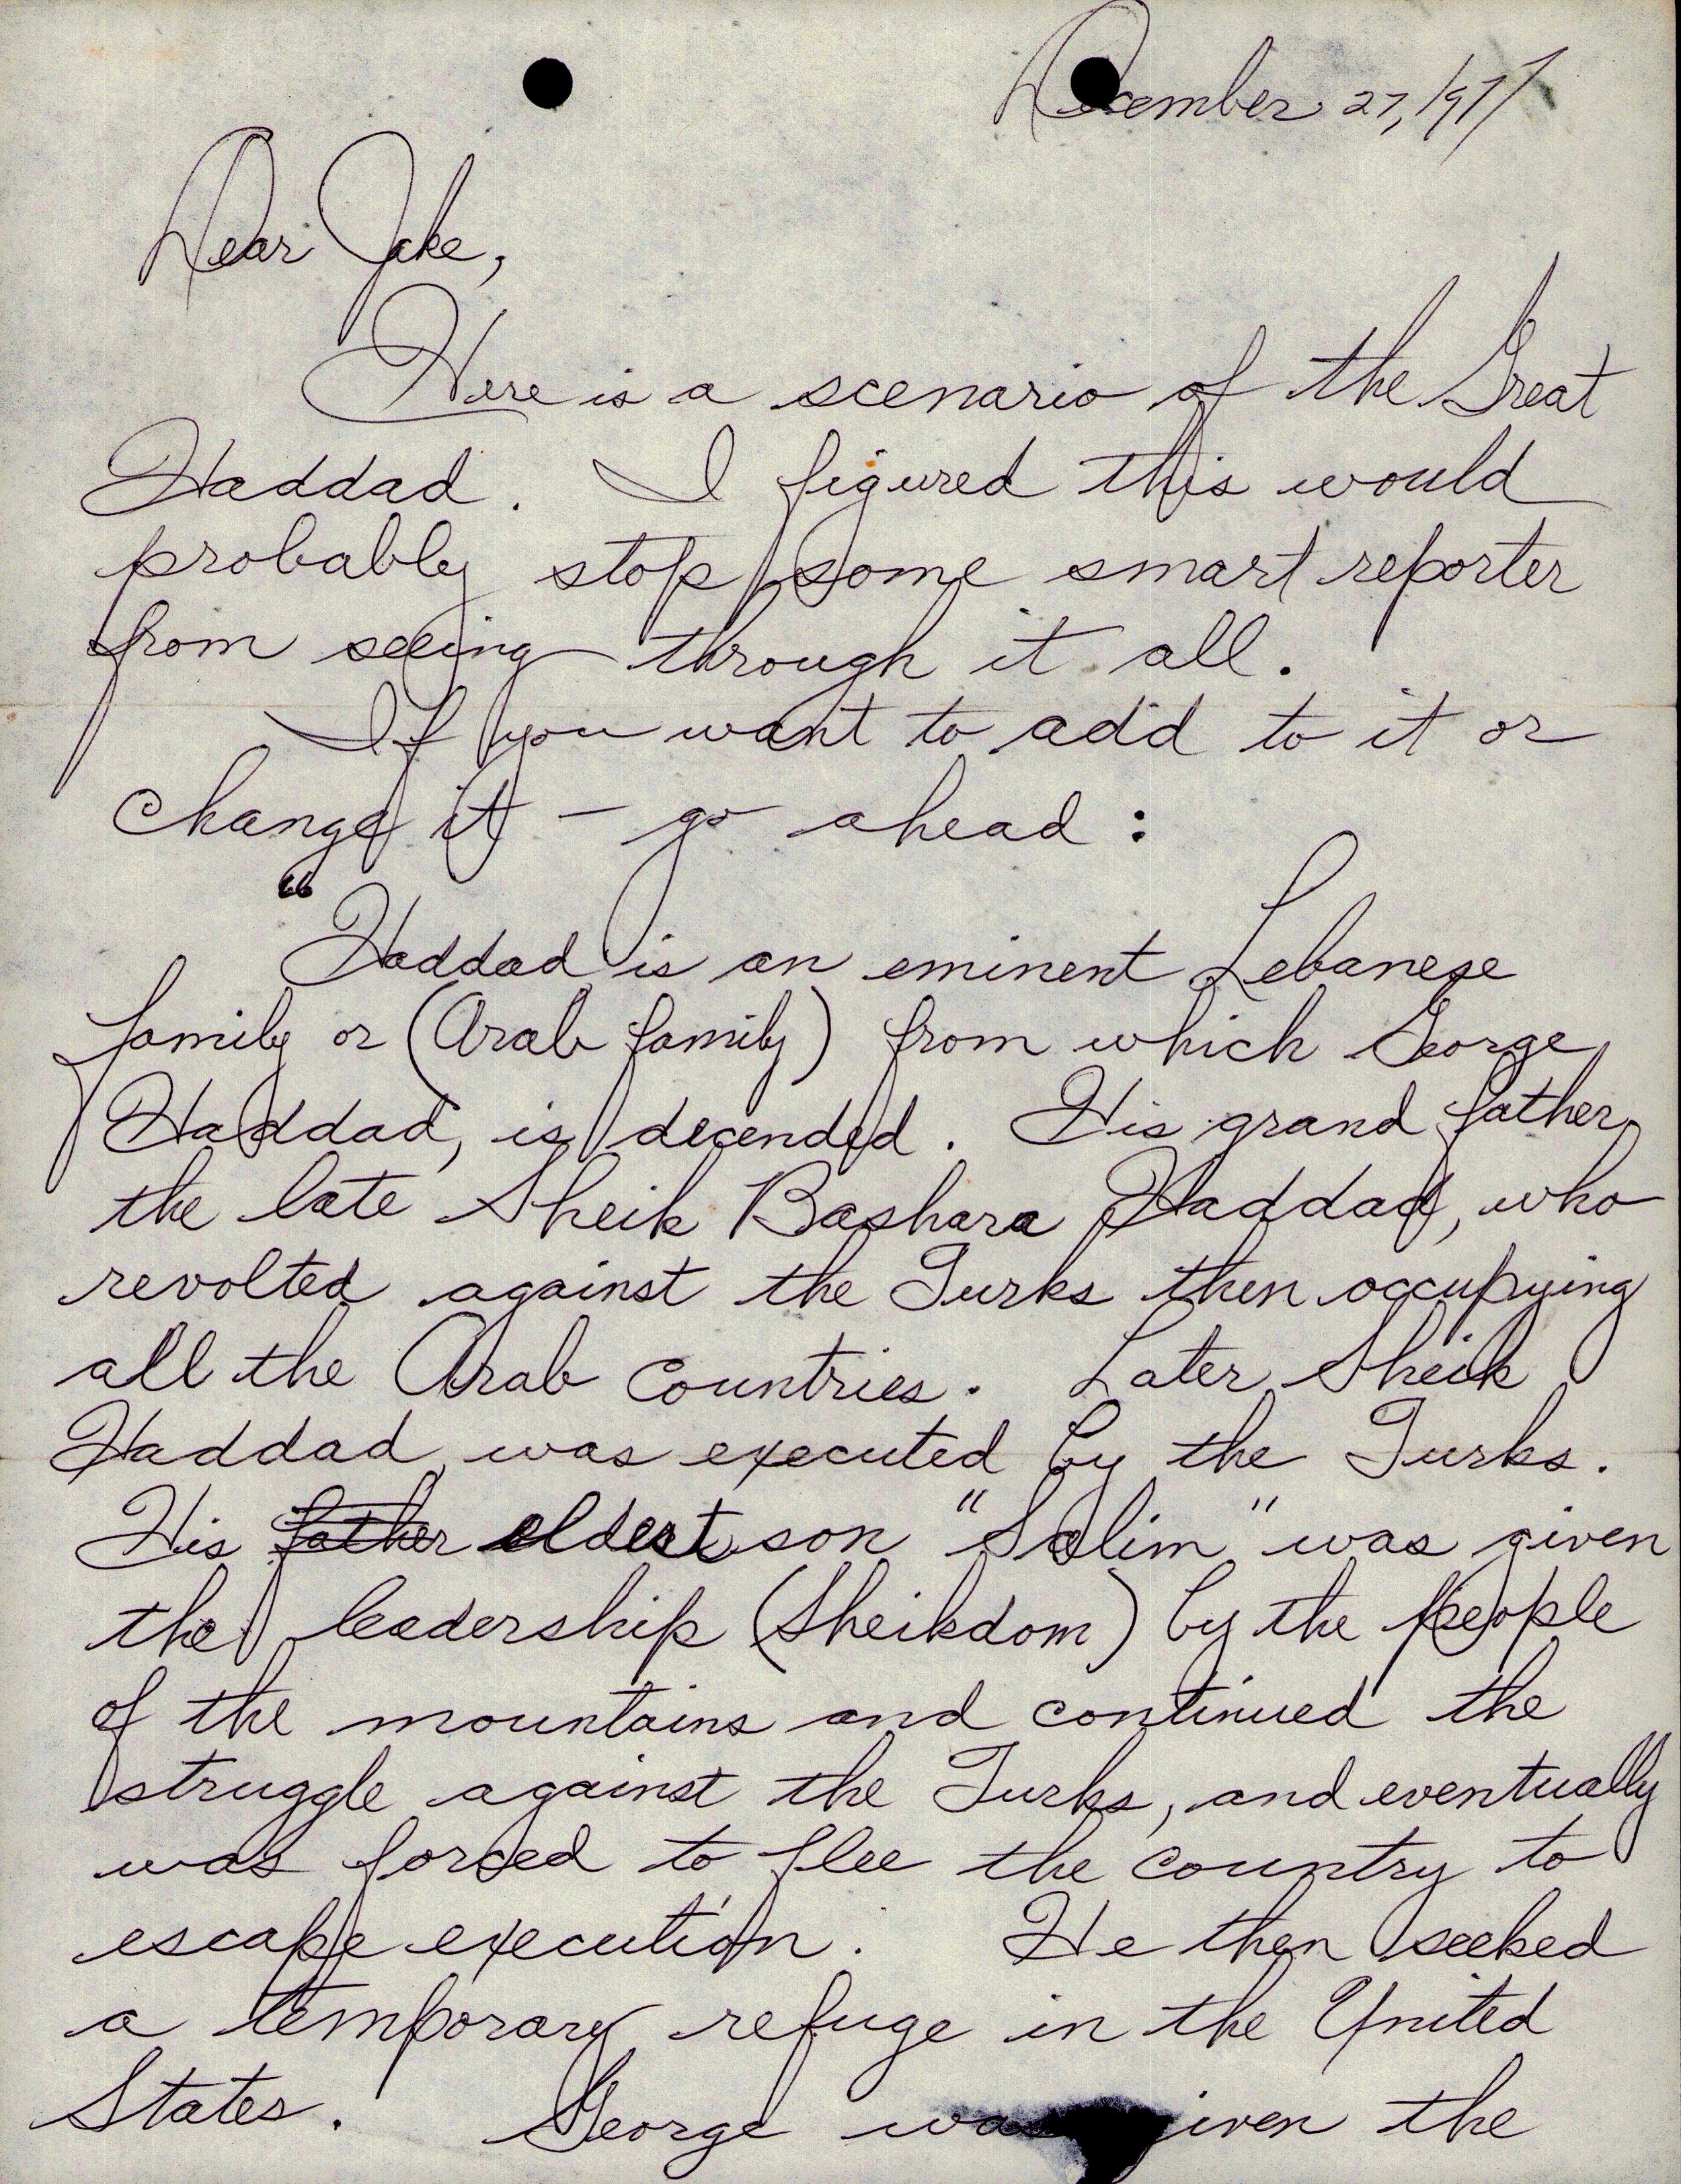 December 27, 1977
Dear Jake,
Here is a scenario of the Great
Haddad. I figured this would
probably stop some smart reporter
from seeing through it all.
If you want to add to it or
change it - go ahead :
"Haddad is an eminent Lebanese
family or (Arab family) from which George
Haddad, is decended. His grand father,
the late Sheik Bashara Haddad, who
revolted against the Turks then occupying
all the Arab Countries. Later Sheik
Haddad was executed by the Turks.
His father eldest son "Salim" was given
the leadership (Sheikdom) by the people
of the mountains and continued the
struggle against the Turks, and eventually
was forced to flee the country to
escape execution. He then seeked
a temporary refuge in the United
States. George was given the